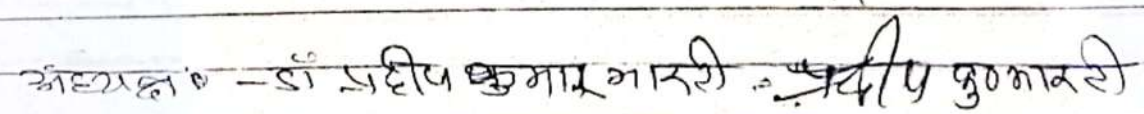 अध्यक्ष - डॉ प्रदीप कुमार भारती प्रदीप कु० भारती